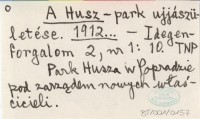 o
A Husz-park ujjászü-
letése. 1912... - Idegen-
forgalom 2, nr 1: 10. TNP
Park Husza w Popradzie
pod zarządem nowych właś-
cicieli.
BT/001A/0157